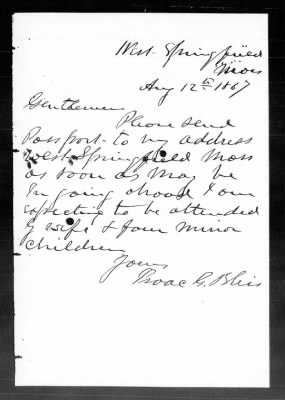 West Springfield
Mass
Aug 12th 1867
Gentlemen
Please send
Passport to my address
West Springfield Mass
as soon as may be
In going abroad I am
expecting to be attended
by wife & four minor
children
Yours
Isaac G. Bliss